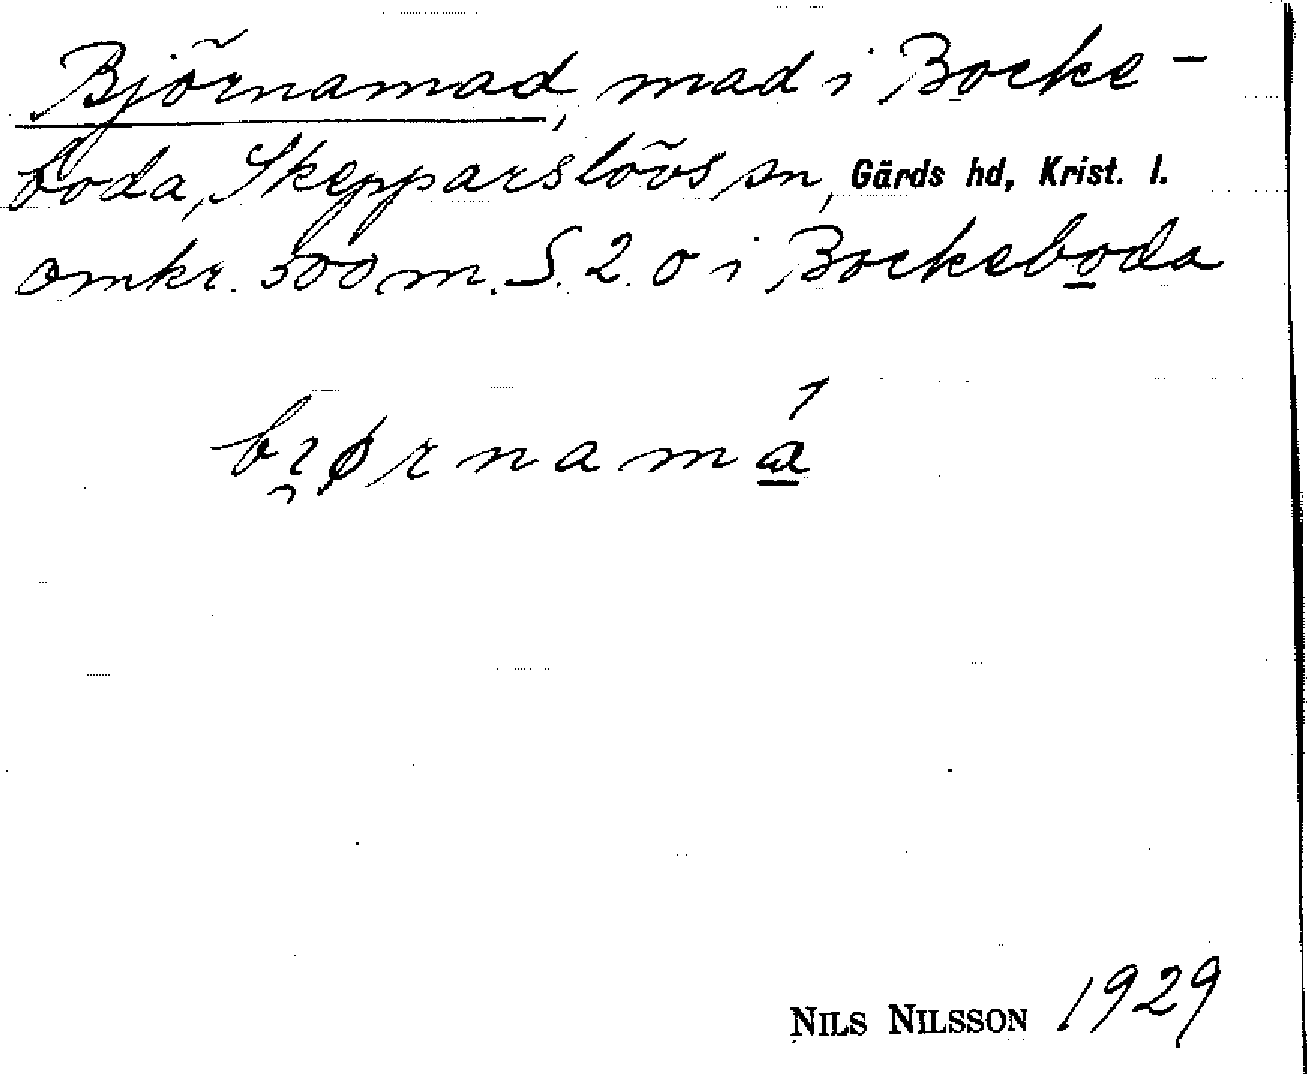 Björnamad, mad i Bocke-
boda, Skepparslövs sn, Gärds hd, Krist. l.
omkr. 500 m. S. 2. o i Bockeboda
bi̯ørnamá
NILS NILSSON 1929